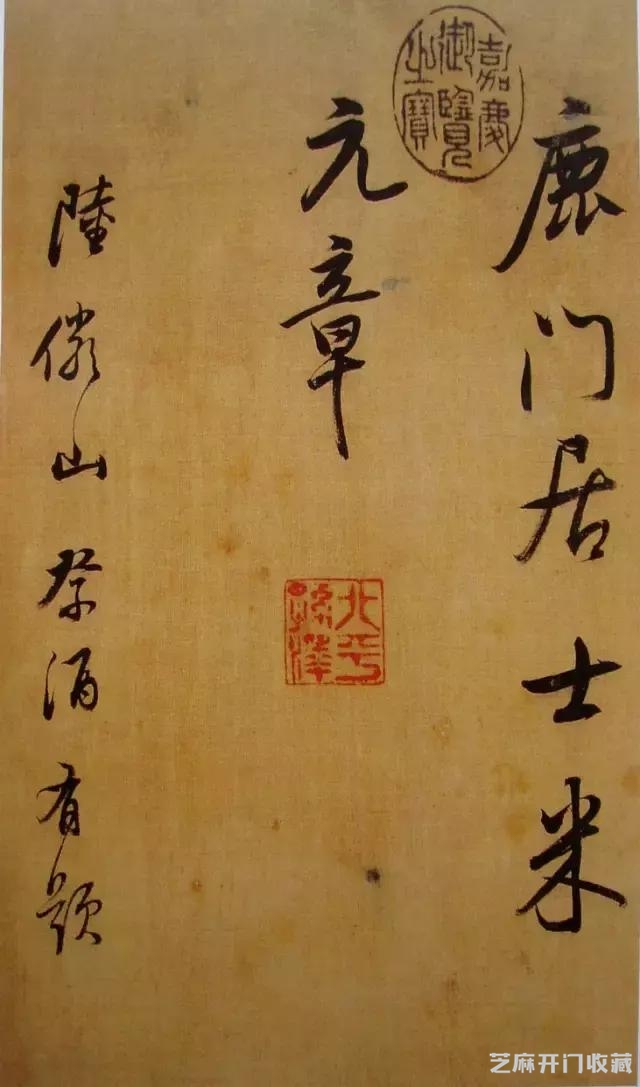 鹿门居士米
元章
陸儼山祭酒有題
嘉慶
御覽
之寶
北平
孫氏
芝麻开门收藏